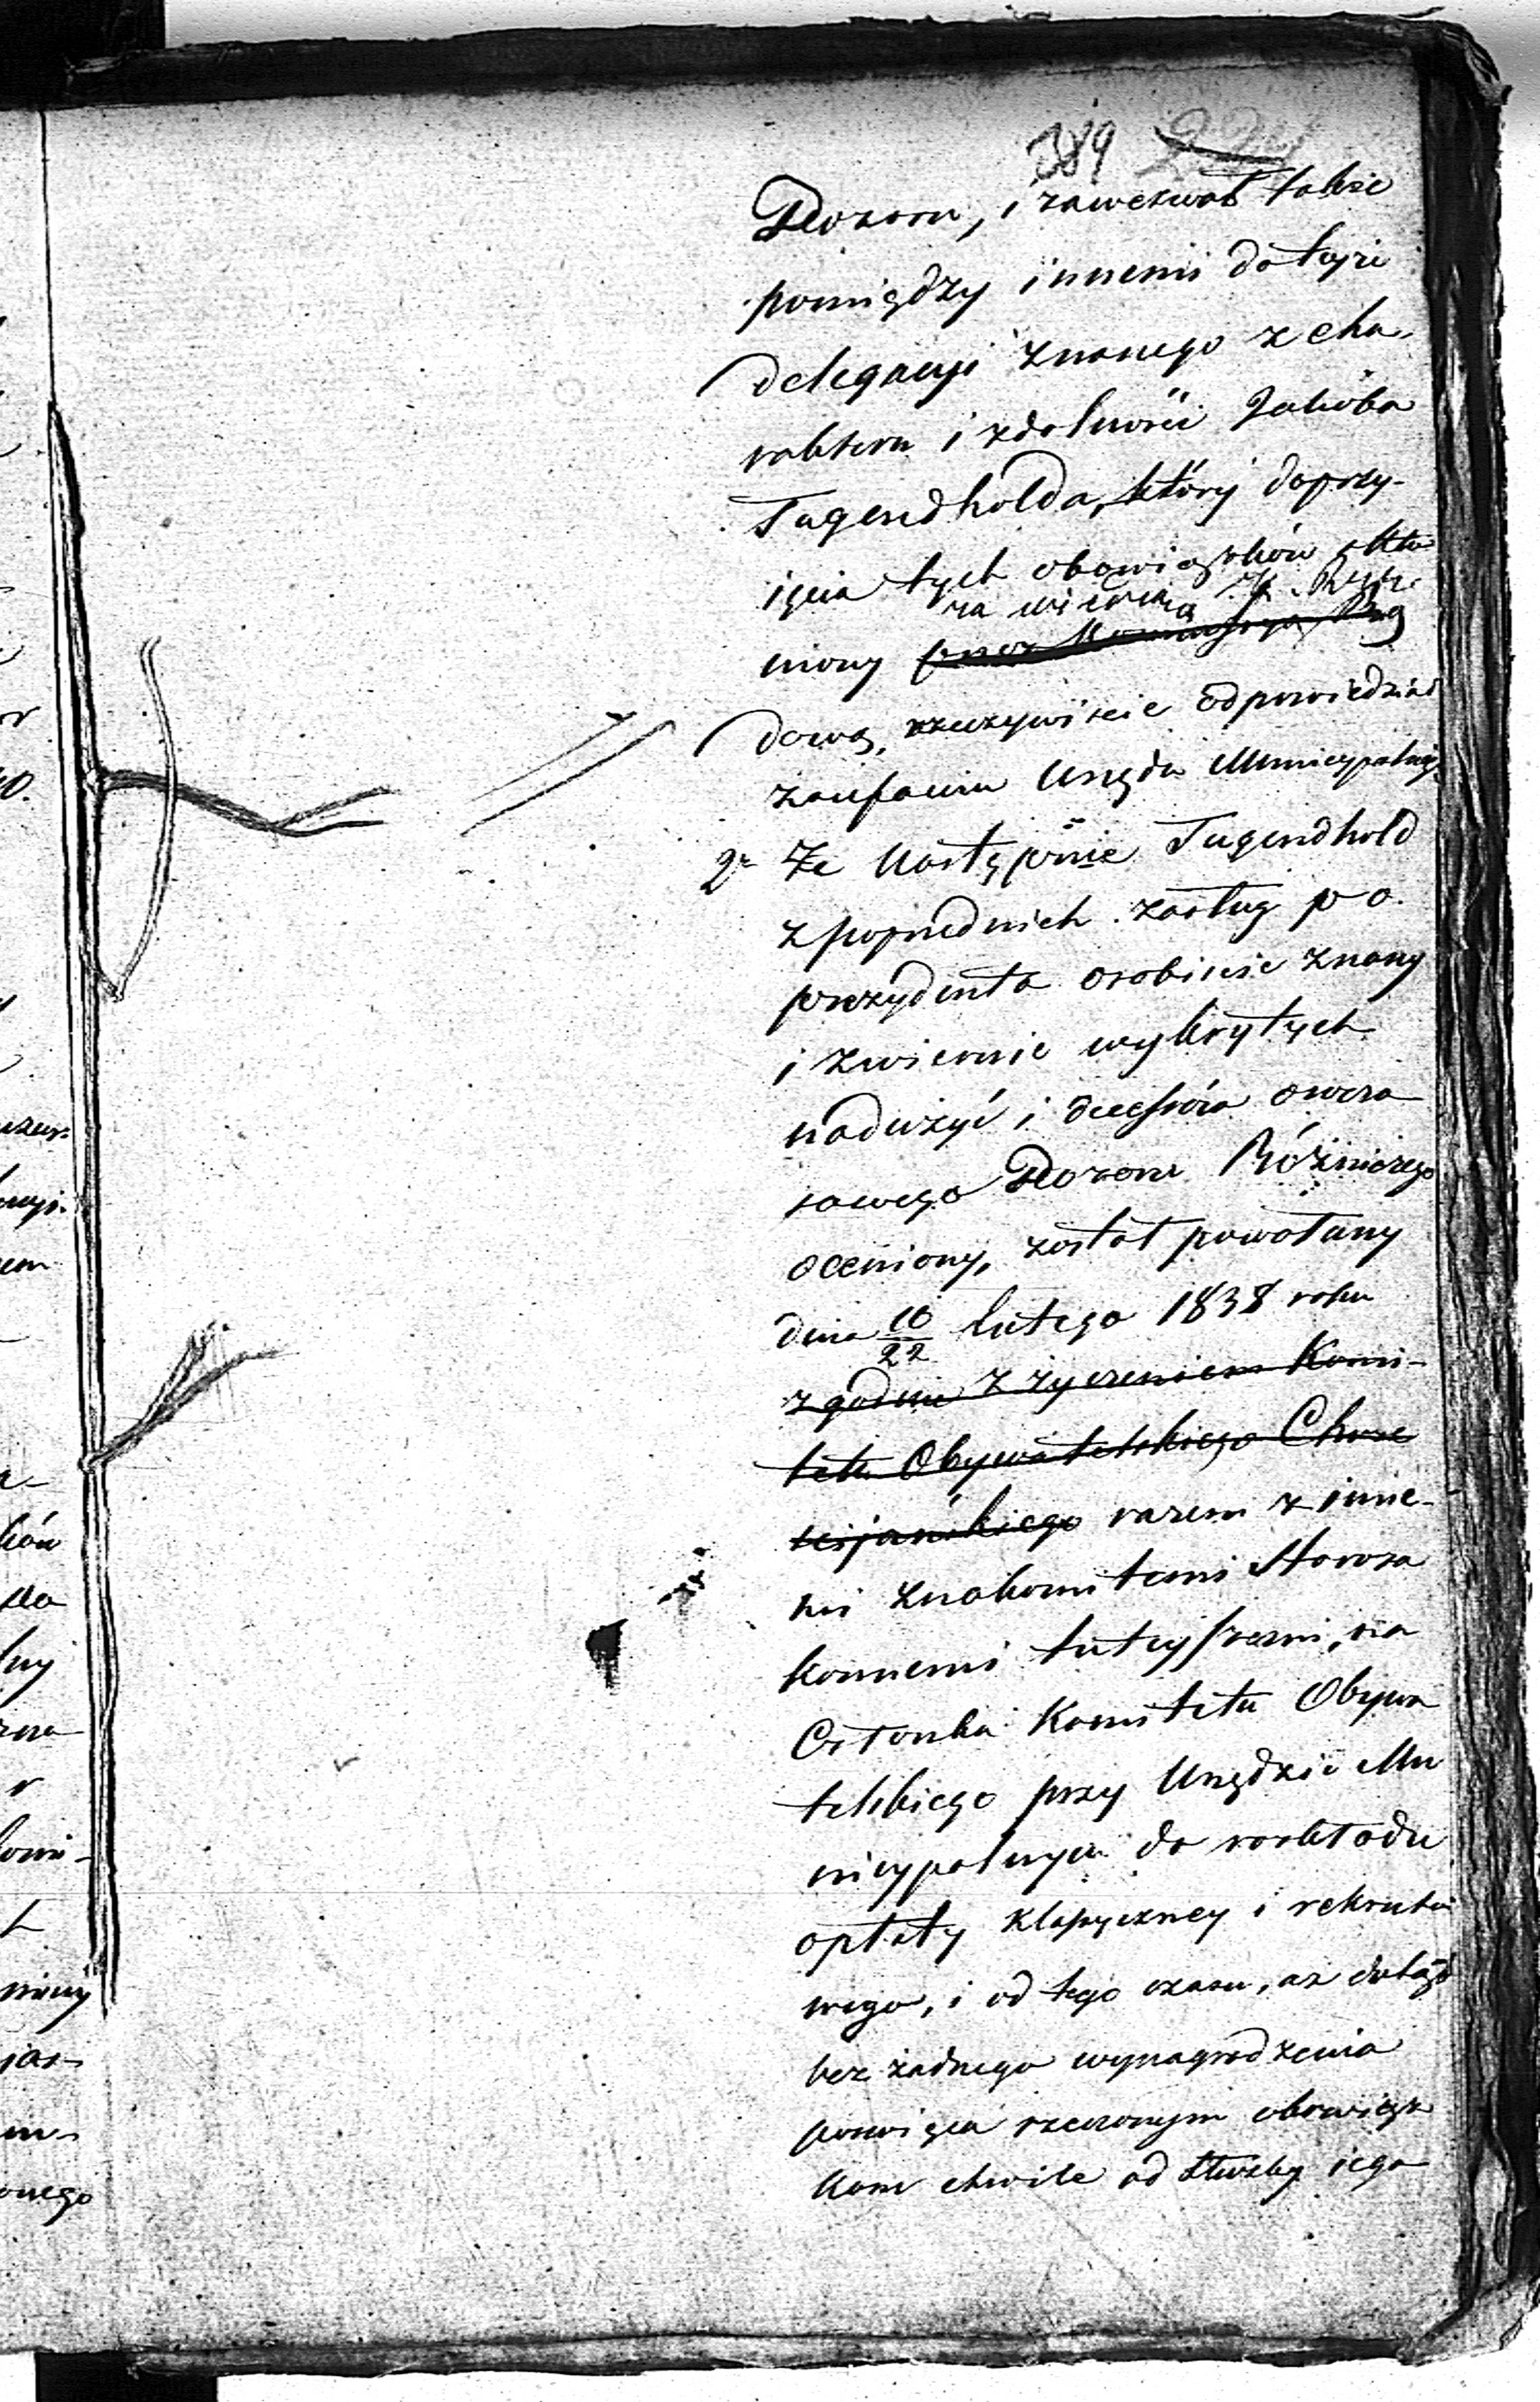 389
Dozoru, i zawezwał także
pomiędzy innemi do tejże
delegacyi znanego z cha-
rakteru i zdolności Jakóba
Tugendholda, który do przy-
ięcia tych obowiązków skło
na wierzą
niony przez Kommissyą Rzą
dową, rzeczywiście odpowiedział
zaufaniu Urzędu Municypalnego
2e Że następnie Tugendhold
z poprzednich zasług p o.
prezydenta osobiście znany
i z wiernie wykrytych
nadużyć i decessów owcza
sowego Dozoru Bóżniczego
oceniony, został powołany
dnia 10/22 lutego 1838 roku
zgodnie z życzeniem Komi-
tetu Obywatelskiego Chrze
scijańskiego razem z inne-
mi znakomitemi Starоza
konnemi tutejszemi, na
Członka Komitetu Obywa
telskiego przy Urzędzie Mu
nicypalnym do rozkładu
opłaty klassyczney i rekruto
wego, i od tego czasu, aż dotąd
bez żadnego wynagrodzenia
poswięca rzeczonym obowiąz
kom chwile od służby iego